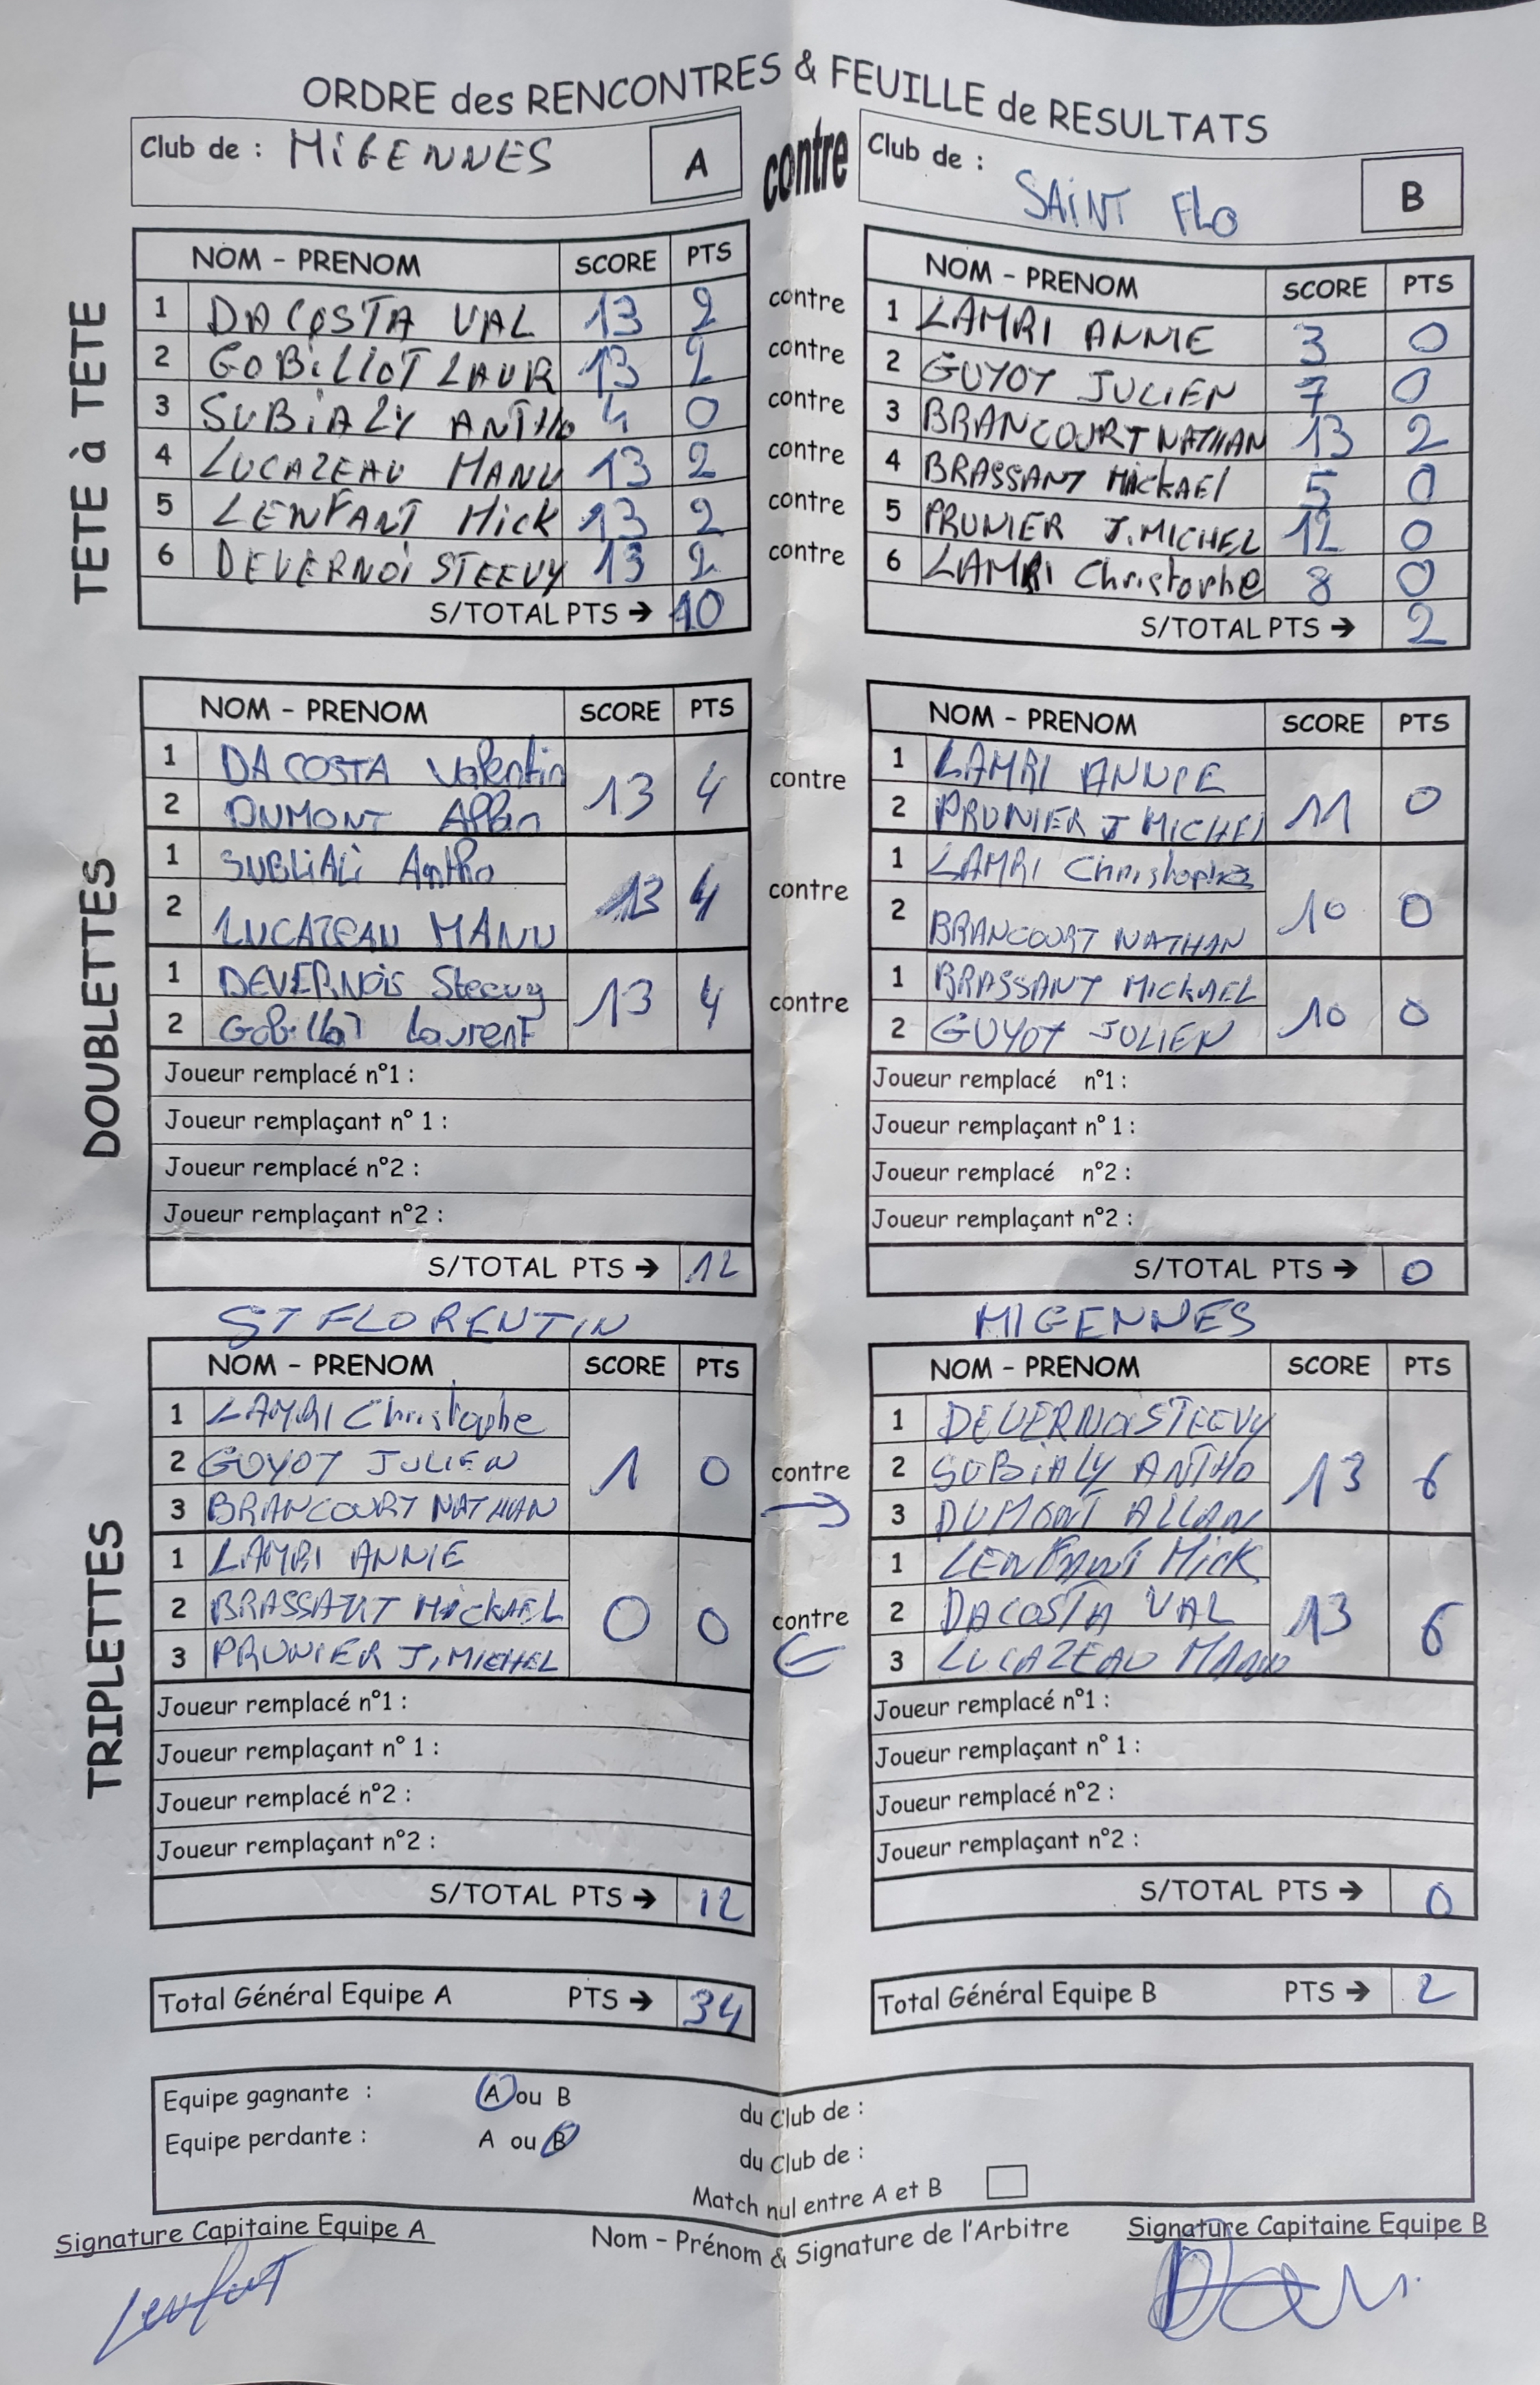 ORDRE des RENCONTRES & FEUILLE de RESULTATS
Club de : MiGENNES A contre Club de : SAiNT FLO B
TETE à TETE
NOM - PRENOM SCORE PTS NOM - PRENOM SCORE PTS
1 DACOSTA VAL 13 2 contre 1 LAMRI ANNIE 3 0
2 GOBiLLOT LAUR 13 2 contre 2 GUYOT JULIEN 7 0
3 SUBiALY ANTHO 4 0 contre 3 BRANCOURT NATHAN 13 2
4 LUCAZEAU MANU 13 2 contre 4 BRASSANT MickAEl 5 0
5 LENFANT Mick 13 2 contre 5 PRUNIER J.MICHEL 12 0
6 DEVERNOi STEEVY 13 2 contre 6 LAMRI Christophe 8 0
S/TOTAL PTS → 10 S/TOTAL PTS → 2
DOUBLETTES
NOM - PRENOM SCORE PTS NOM - PRENOM SCORE PTS
1 DA COSTA Valentin 13 4 contre 1 LAMRI ANNIE 11 0
2 DUMONT Allan 2 PRUNIER J MICHEL
1 SUBLiALi Antho 13 4 contre 1 LAMRI Christophe 10 0
2 LUCAZEAU MANU 2 BRANCOURT NATHAN
1 DEVERNOiS Steevy 13 4 contre 1 BRASSANT MICKAEL 10 0
2 Gobillot Laurent 2 GUYOT JULIEN
Joueur remplacé n°1 : Joueur remplacé n°1 :
Joueur remplaçant n° 1 : Joueur remplaçant n° 1 :
Joueur remplacé n°2 : Joueur remplacé n°2 :
Joueur remplaçant n°2 : Joueur remplaçant n°2 :
S/TOTAL PTS → 12 S/TOTAL PTS → 0
ST FLORENTIN MIGENNES
TRIPLETTES
NOM - PRENOM SCORE PTS NOM - PRENOM SCORE PTS
1 LAMRI Christophe 1 0 contre → 1 DEVERNOiSTEEVY 13 6
2 GUYOT JULIEN 2 SUBiALY ANTHO
3 BRANCOURT NATHAN 3 DUMONT ALLAN
1 LAMRI ANNIE 0 0 contre ← 1 LENFANT Mick 13 6
2 BRASSANT MICKAEL 2 DACOSTA VAL
3 PRUNIER J,MICHEL 3 LUCAZEAU MANU
Joueur remplacé n°1 : Joueur remplacé n°1 :
Joueur remplaçant n° 1 : Joueur remplaçant n° 1 :
Joueur remplacé n°2 : Joueur remplacé n°2 :
Joueur remplaçant n°2 : Joueur remplaçant n°2 :
S/TOTAL PTS → 12 S/TOTAL PTS → 0
Total Général Equipe A PTS → 34 Total Général Equipe B PTS → 2
Equipe gagnante : A ou B du Club de :
Equipe perdante : A ou B du Club de :
Match nul entre A et B
Signature Capitaine Equipe A Nom - Prénom & Signature de l'Arbitre Signature Capitaine Equipe B
Lenfant